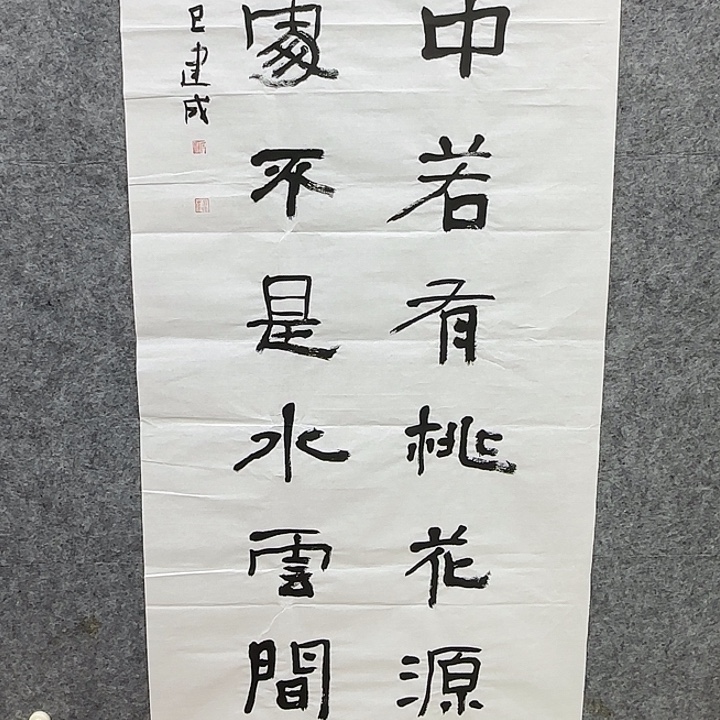 中若有桃花源
處不是水雲間
巳建成